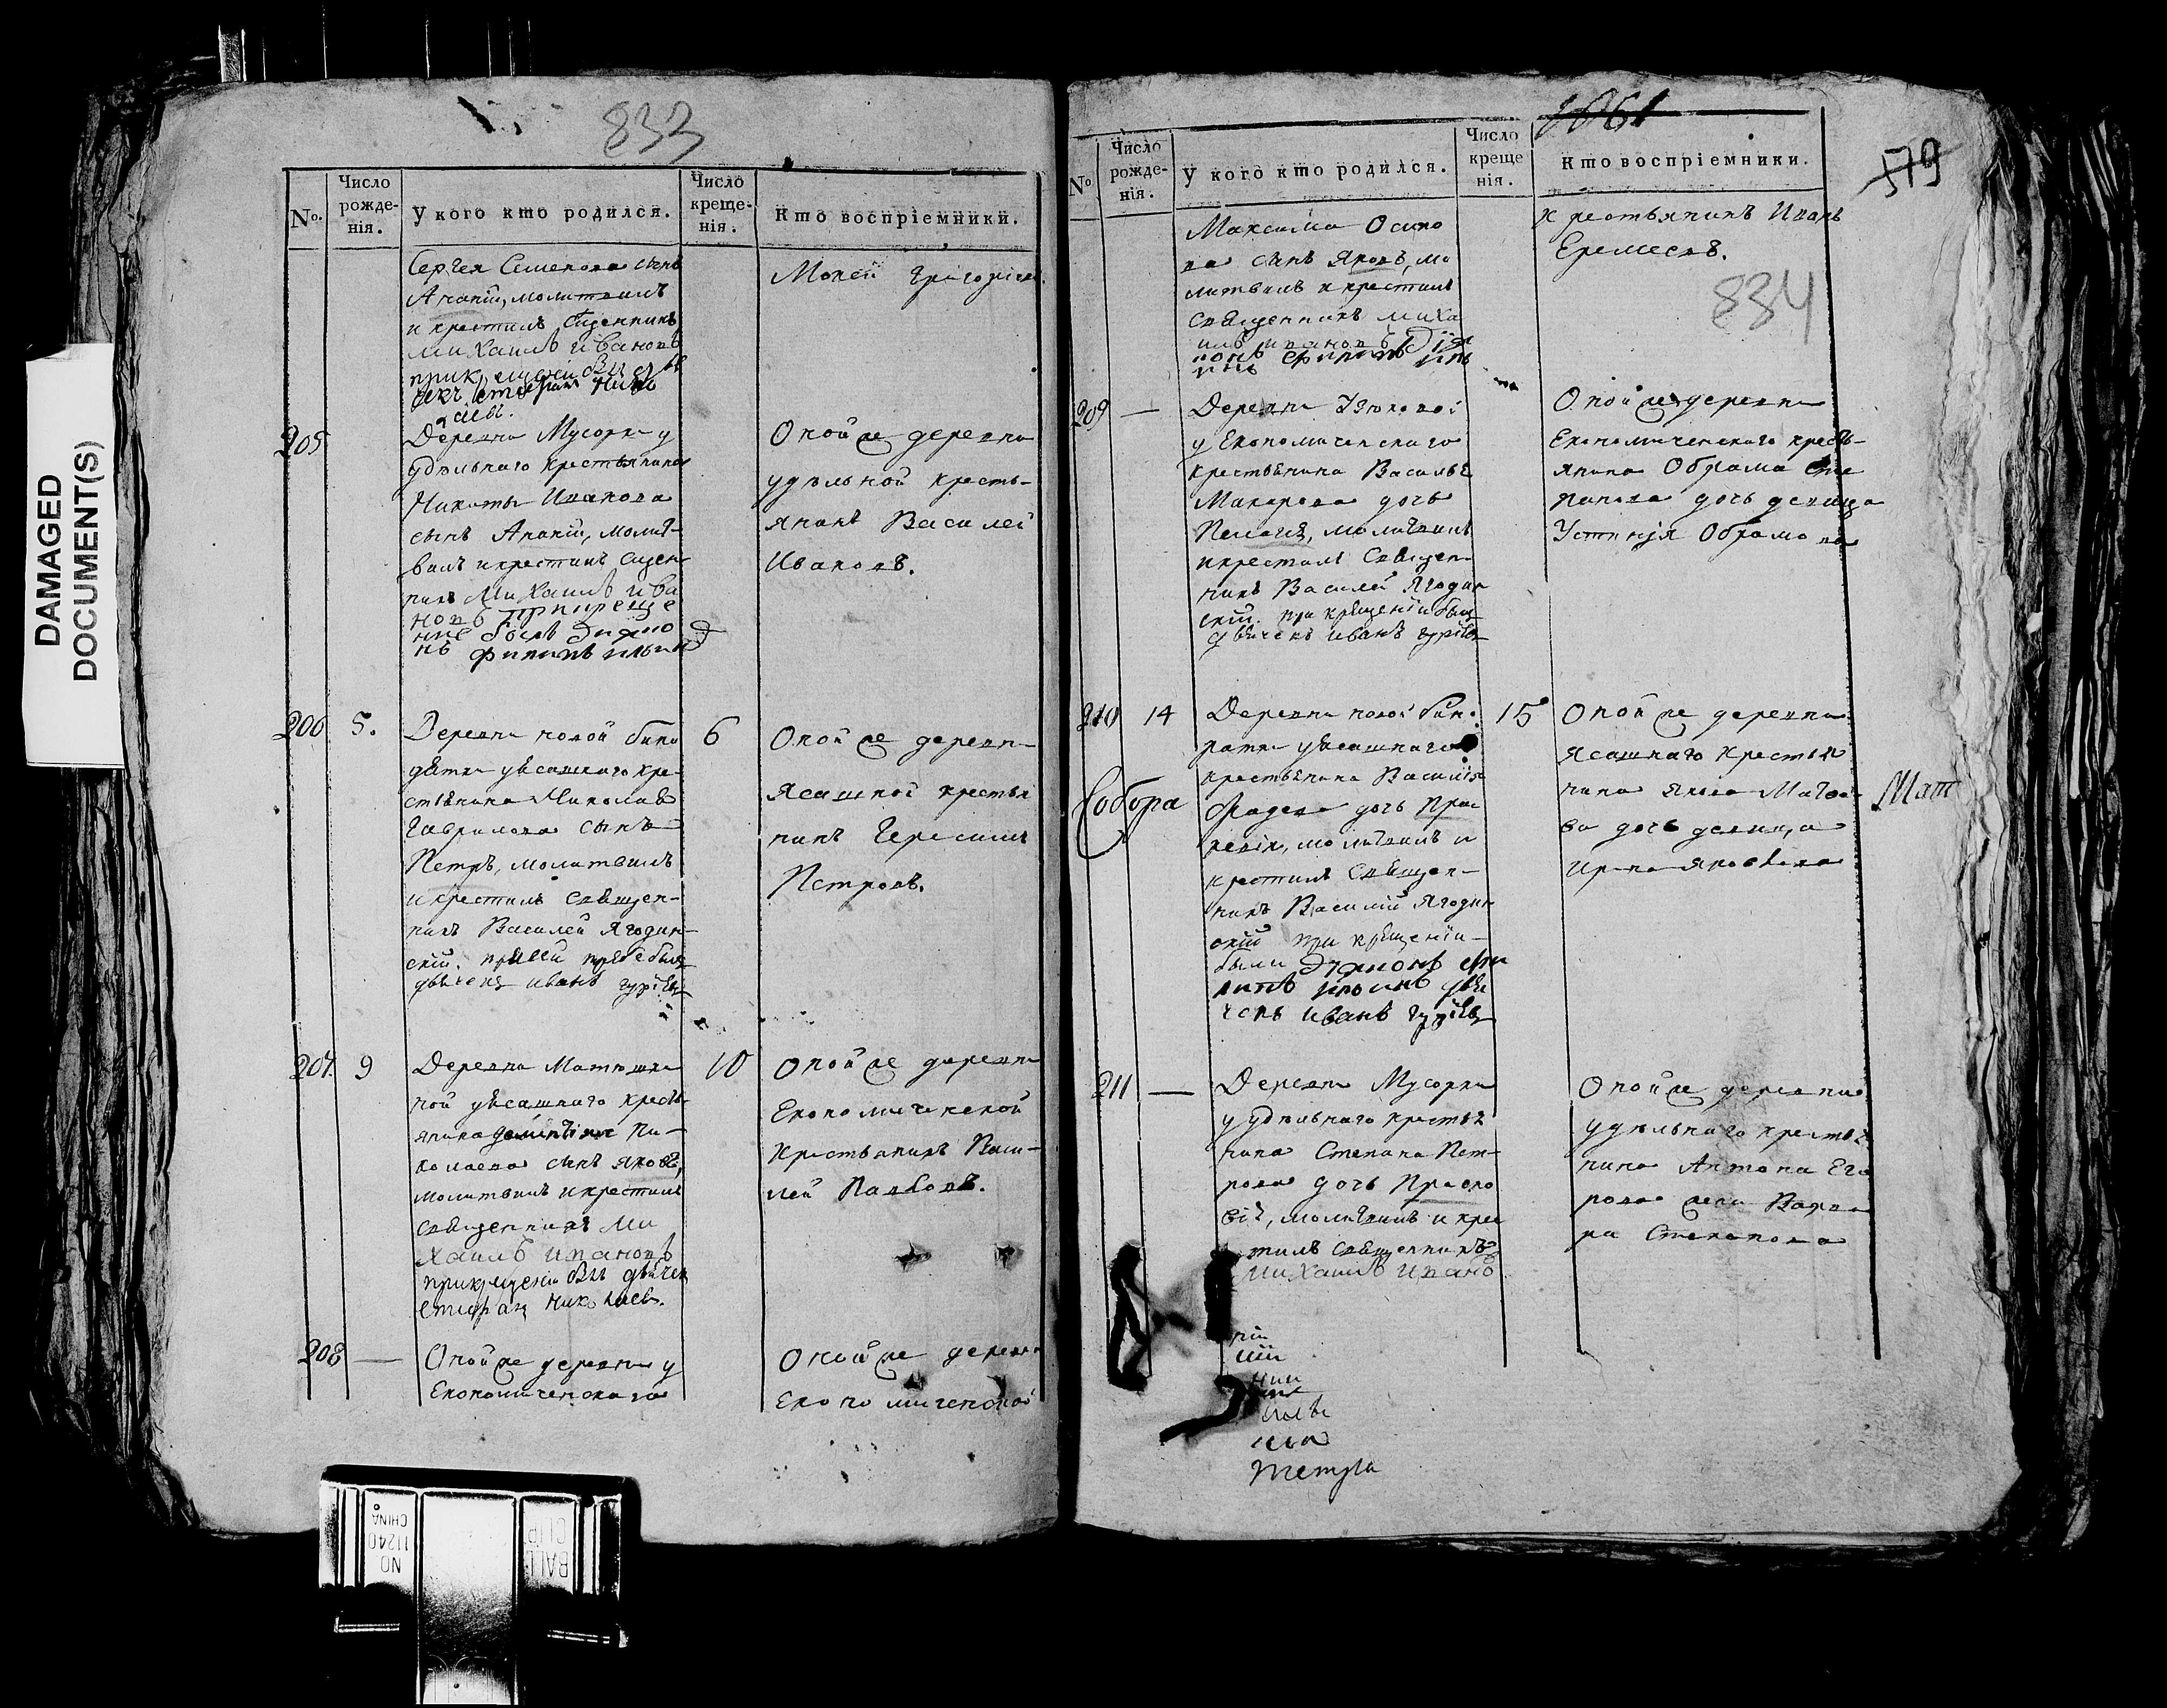 DAMAGED
DOCUMENT(S)
833
№.
Число рожде-нія.
У кого кто родился.
Число креще-нія.
Кто воспріемники.
Сергея Семенова сынъ
Ананій, молитвилъ
и крестилъ Сщенникъ
Михаилъ Ивановъ
Мокей Григорьевъ
205
Деревни Мусорки у
удѣльнаго крестьянина
Никиты Иванова
сынъ Ананій, молит-
вилъ и крестилъ Сщен-
никъ Михаилъ Ива
новъ При креще
ніе былъ Диако
нъ Филипъ Ильинъ
Оной же деревни
удѣльной кресть-
янинъ Василей
Ивановъ.
206
5.
Деревни новой бина
радки у Ясашнаго кре-
стьянина Николая
Гаврилова сынъ
Петръ, молитвилъ
и крестилъ Священ-
никъ Василей Ягодин-
скій.
дьячекъ иванъ гурьевъ
6
Оной же деревни
Ясашной крестья
нинъ Герасимъ
Петровъ.
207.
9
Деревни Матюшки
ной у Ясашнаго кресть-
янина Дементія Ни-
колаева сынъ Яковъ,
молитвилъ и крестилъ
Священникъ Ми
хаилъ Ивановъ
при крещеніи былъ дьячекъ
Стефанъ Николаевъ.
10
Оной же деревни
Економической
Крестьянинъ Васи-
лей Павловъ.
208
—
Оной же деревни у
Економическаго
Оной же деревни
Економической
1061
579
№
Число рожде-нія.
У кого кто родился.
Число креще нія.
Кто воспріемники.
Максима Осипо
ва сынъ Яковъ, мо
литвилъ и крестилъ
Священникъ Миха
илъ Ивановъ Дія
конъ Филипъ Иль
инъ
крестьянинъ Иванъ
Еремеевъ.
834
209
—
Деревни Узюковой
у Економическаго
крестьянина Василья
Макарова дочь
Пелагія, молитвилъ
и крестилъ Священ-
никъ Василей Ягодин
скій. при крещеніи былъ
дьячекъ иванъ гурьевъ
Оной же деревни
Економическаго кресть-
янина Обрама Сте
панова дочь девица
Устинія Обрамова
210
14
Деревни новой бина
ратки у Ясашнаго
крестьянина Василія
Фадеева дочь Прас
ковія, молитвилъ и
крестилъ Священ-
никъ Василій Ягодин
скій при крещеніи
были Діяконъ Фи
липъ Ильинъ дья
чекъ иванъ гурьевъ
15
Оной же деревни
Ясашнаго крестья
нина Якова Матве-
ва дочь девица
Ирина Яковлева
Собора
Мат
211
—
Деревни Мусорки
у удѣльнаго крестья
нина Степана Пет-
рова дочь Праско
вія, молитвилъ и крес
тилъ Священникъ
Михаилъ Ивано
Оной же деревни
удѣльнаго крестья
нина Антона Его
рова жена Варва
ра Степанова
NO
11240
CHINA
BALL
CLIP